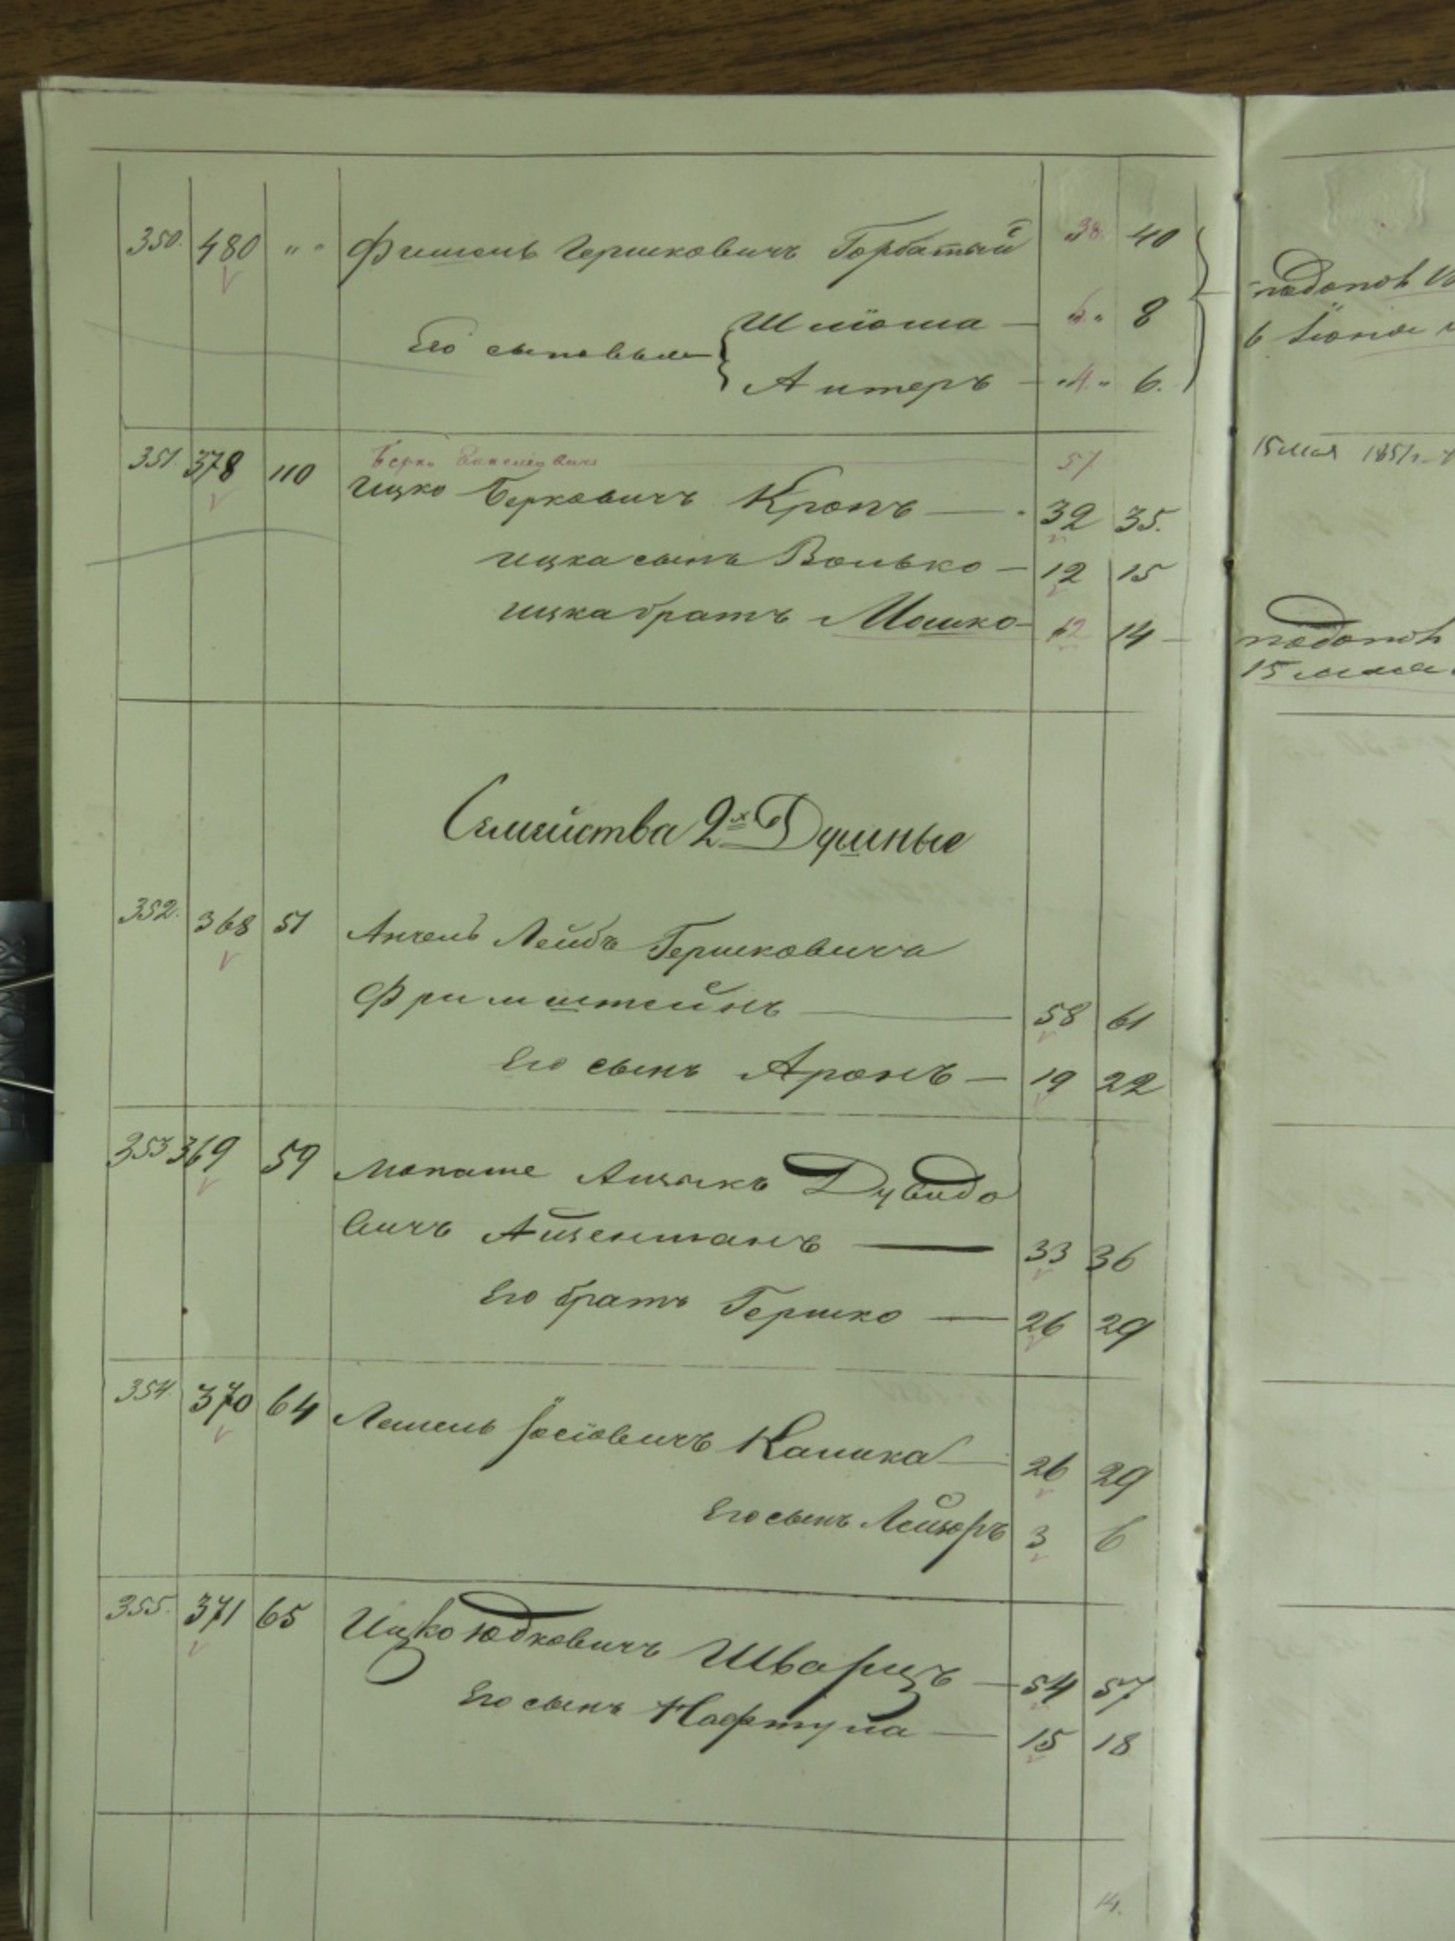 350. 480 " " Фишель Гершковичъ Горбатый "38. 40
Его сыновья { Шлiома — "6." 8
Алтеръ — "4." 6.
351. 378 110 Берко 51
Ицко Берковичъ Кропъ — 32 35.
Ицка сынъ Волько — 12 15
Ицка братъ Мошко — 12 14 —
Семейства 2хъ Душные
352. 368 51 Анчель Лейбъ Гершковича
Фримштейнъ — 58 61
Его сынъ Аронъ — 19 22
353 369 59 Монаше Айзыкъ Дувидо
вичъ Айзенманъ — 33 36
Его братъ Гершко — 26 29
354. 370 64 Лемель Іосіовичъ Калика — 26 29
Его сынъ Лейзоръ 3 6
355. 371 65 Ицко Юдковичъ Шварцъ — 54 57
Его сынъ Нафтула — 15 18
14.
6 Іюня
15 мая 1851
15 мая